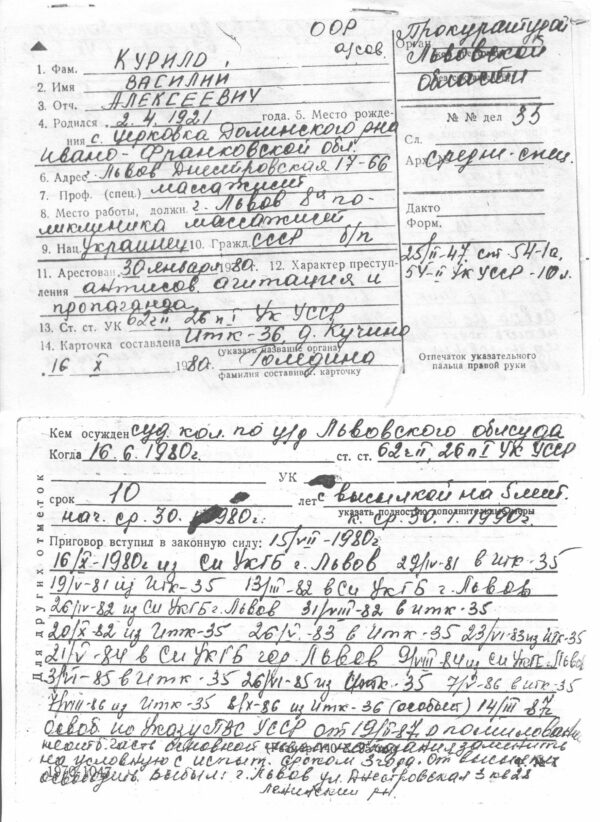 ООР
Орган Прокуратурой
1. Фам. КУРИЛО
Львовской
2. Имя ВАСИЛИЙ
области
3. Отч. АЛЕКСЕЕВИЧ
4. Родился 2. 4. 1921 года. 5. Место рожде-
№ № дел 33
ния с. Церковка Долинского р-на
Сл.
Ивано-Франковской обл.
Арх. средне-спец.
6. Адрес г. Львов Днестровская 17-66
7. Проф. (спец.) массажист
Дакто
8. Место работы, должн. г. Львов 8я по-
Форм.
ликлиника массажист
9. Нац. Украинец 10. Гражд. СССР б/п
25/II-47 ст 54-1а,
11. Арестован 30 января 1980г. 12. Характер преступ-
54-11 УК УССР - 10 л.
ления антисов агитация и
пропаганда
13. Ст. ст. УК 62 ч II, 26 п I УК УССР
14. Карточка составлена ИТК-36, д. Кучино
(указать название органа)
16 X 1980г.
фамилия составив. карточку
Отпечаток указательного
пальца правой руки
Для других отметок
Кем осужден суд. кол. по у/д Львовского облсуда
Когда 16. 6. 1980г. ст. ст. 62 ч II, 26 п I УК УССР
УК
срок 10 лет с высылкой на 5 лет.
указать полностью дополнительные меры
нач. ср. 30. 1980г. к. ср. 30. 1. 1990г.
Приговор вступил в законную силу: 15/VII-1980г
16/X-1980г из СИ УКГБ г. Львов 29/IV-81 в ИТК-35
19/V-81 из ИТК-35 13/III-82 в СИ УКГБ г. Львов
26/IV-82 из СИ УКГБ г. Львов 31/VIII-82 в ИТК-35
20/X-82 из ИТК-35 26/V-83 в ИТК-35 23/VI-83 из ИТК-35
21/V-84 в СИ УКГБ гор. Львов 9/VIII-84 из СИ УКГБ г. Львов
3/VI-85 в ИТК-35 26/VI-85 из ИТК-35 7/V-86 в ИТК-35
VIII-86 из ИТК-35 8/X-86 из ИТК-36 (особый) 14/III 87г
освоб по Указу ПВС УССР от 19/II-87 о помиловании
часть основной заменить
на условную с испыт. сроком 3 года. От высылки
освободить. Выбыл: г. Львов ул. Днестровская 3 кв 28
Ленинский рн.